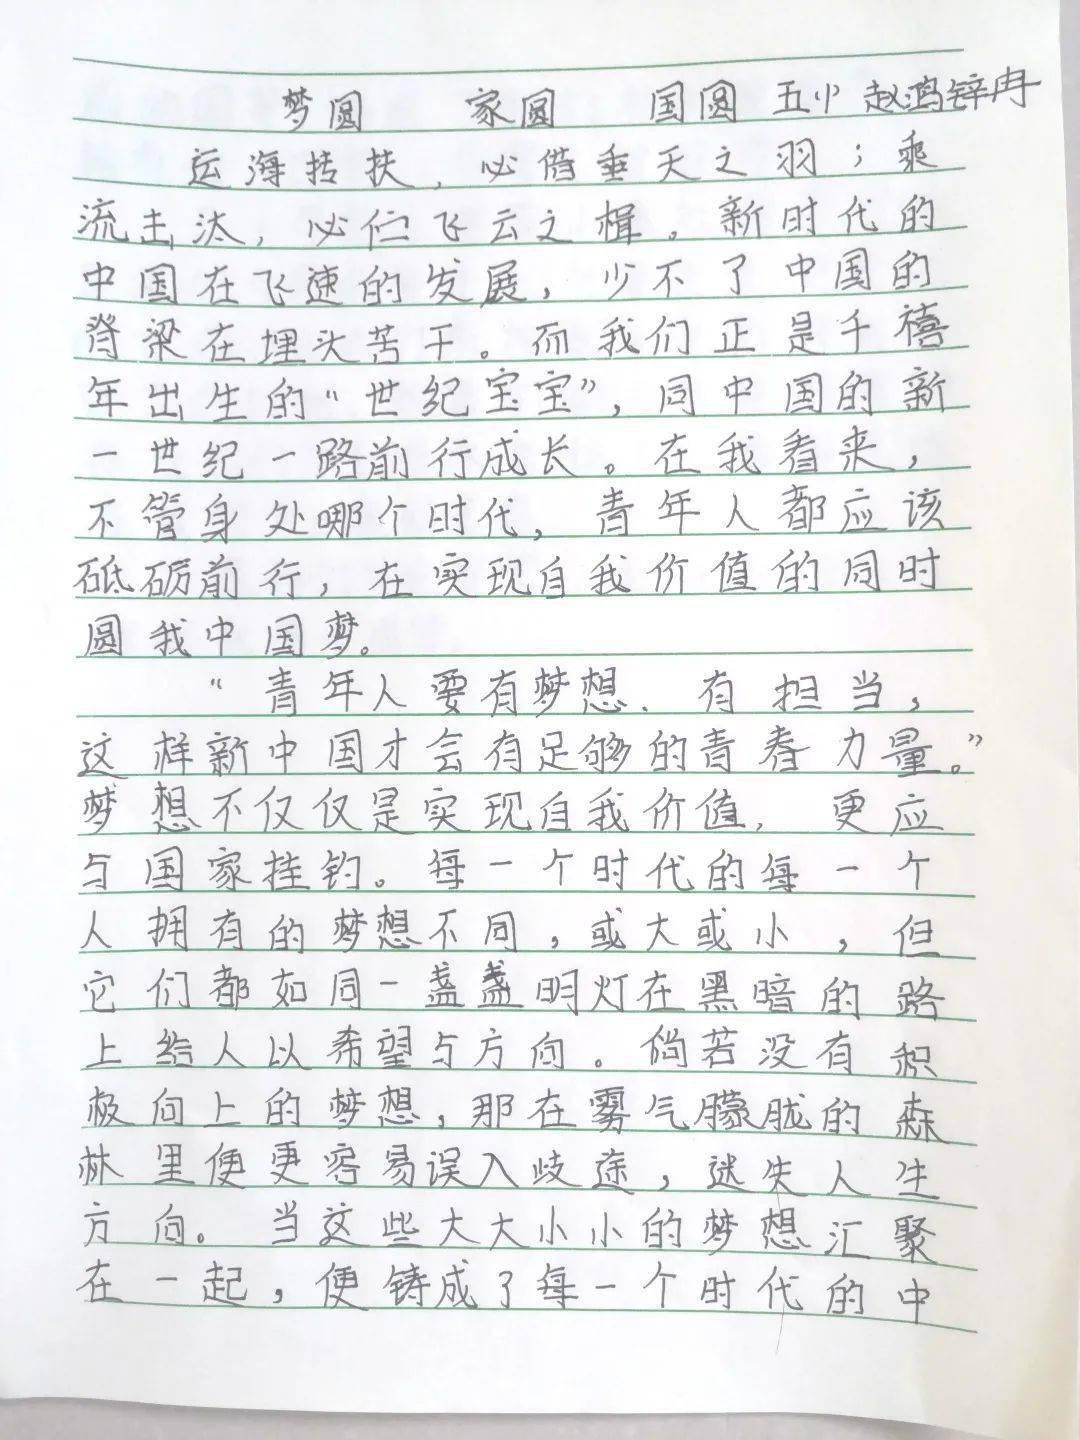 梦圆 家圆 国圆 五小 赵鸿锌冉
运海抟扶，必借垂天之羽；乘
流击汰，必伫飞云之楫。新时代的
中国在飞速的发展，少不了中国的
脊梁在埋头苦干。而我们正是千禧
年出生的“世纪宝宝”，同中国的新
一世纪一路前行成长。在我看来，
不管身处哪个时代，青年人都应该
砥砺前行，在实现自我价值的同时
圆我中国梦。
“青年人要有梦想、有担当，
这样新中国才会有足够的青春力量。”
梦想不仅仅是实现自我价值，更应
与国家挂钓。每一个时代的每一个
人拥有的梦想不同，或大或小，但
它们都如同一盏盏明灯在黑暗的路
上给人以希望与方向。倘若没有积
极向上的梦想，那在雾气朦胧的森
林里便更容易误入歧途，迷失人生
方向。当这些大大小小的梦想汇聚
在一起，便铸成了每一个时代的中